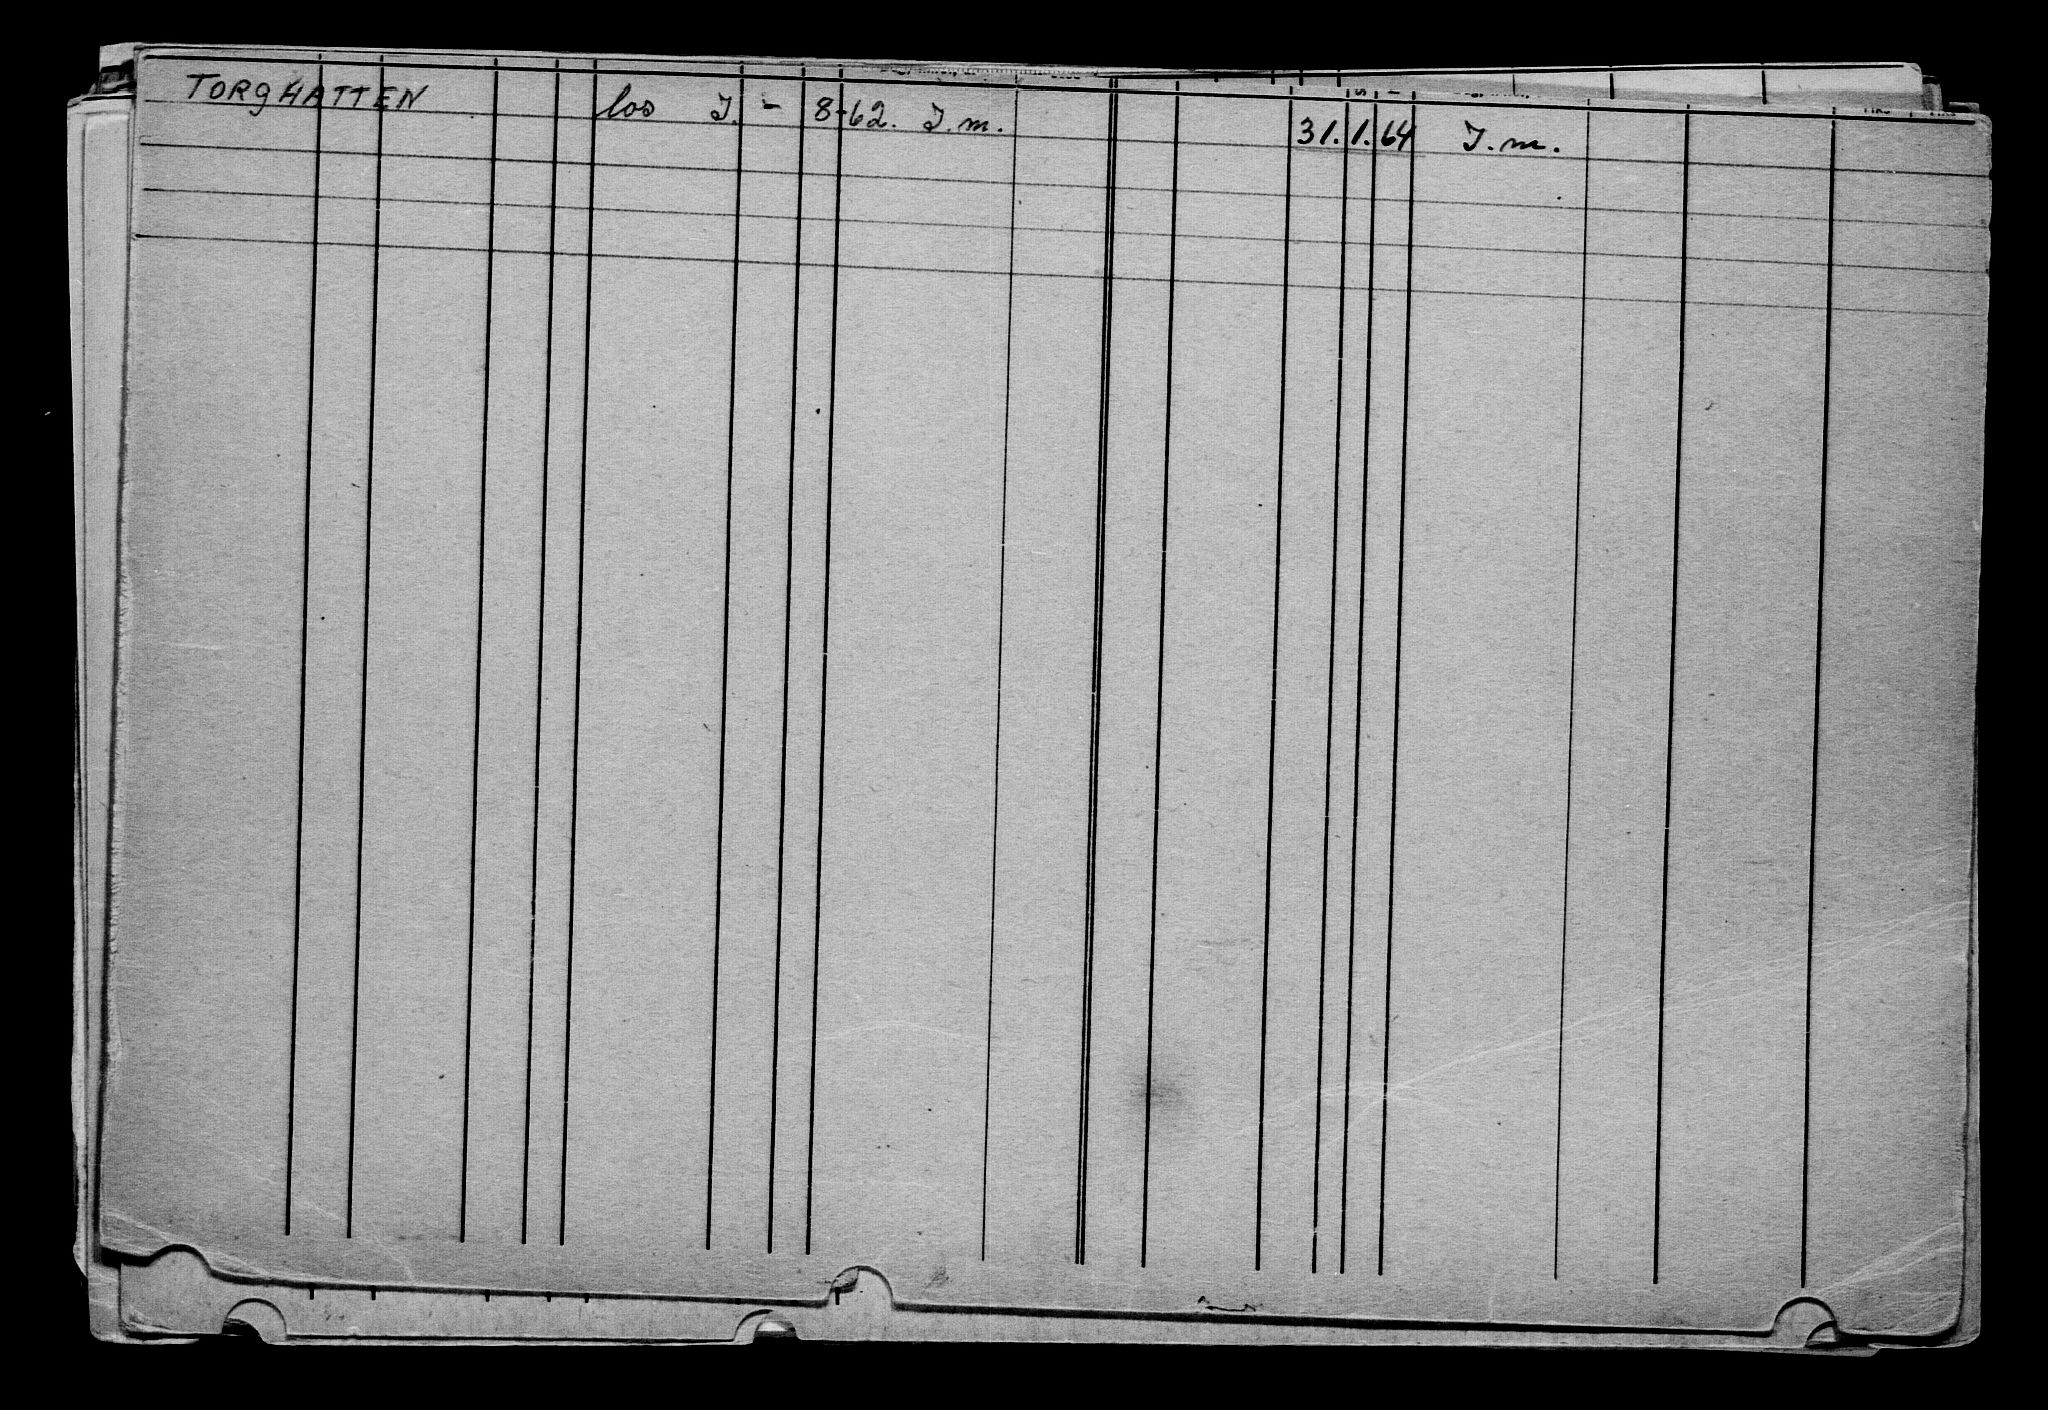 TORGHATTEN los J. - 8-62. J.m. 31. 1. 64 J.m.